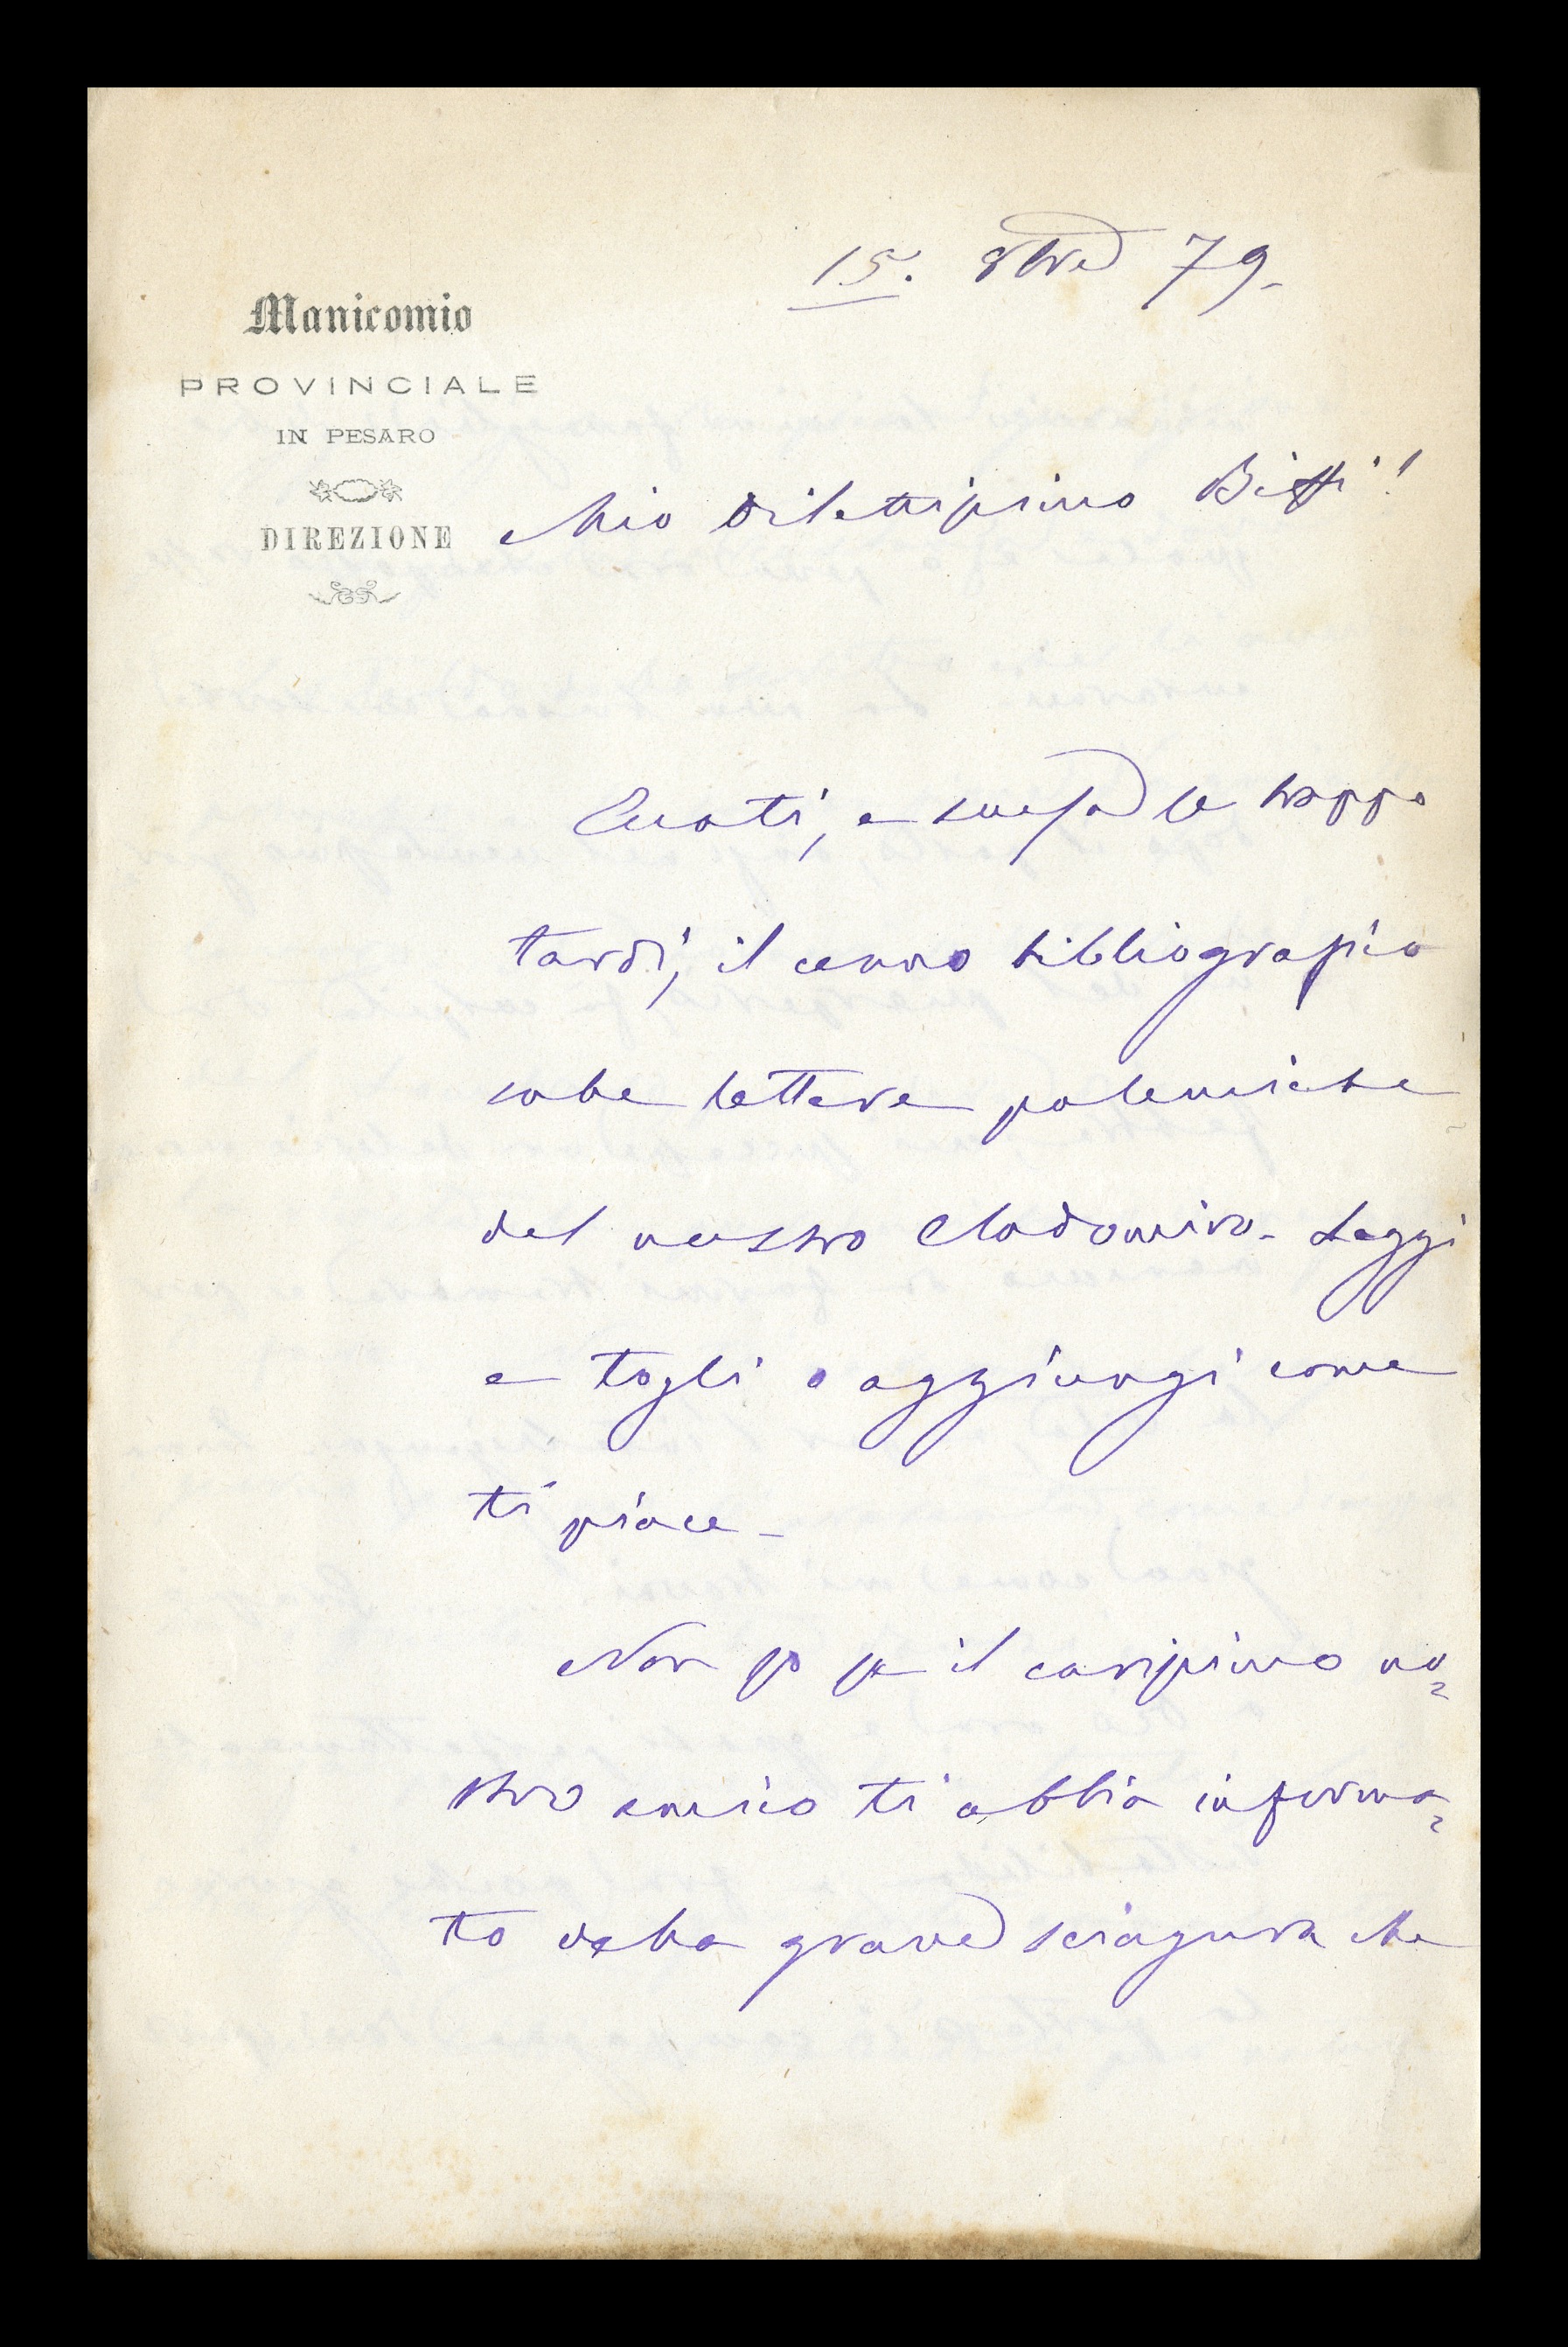 15. 8bre 79.
Manicomio
PROVINCIALE
IN PESARO
DIREZIONE
Mio dilettissimo Biffi!
Eccoti, e scusa se troppo
tardi, il cenno bibliografico
sulle lettere polemiche
del nostro Clodomiro. Leggi
e togli o aggiungi come
ti piace.
Non so se il carissimo no=
stro amico ti abbia informa=
to della grave sciagura che